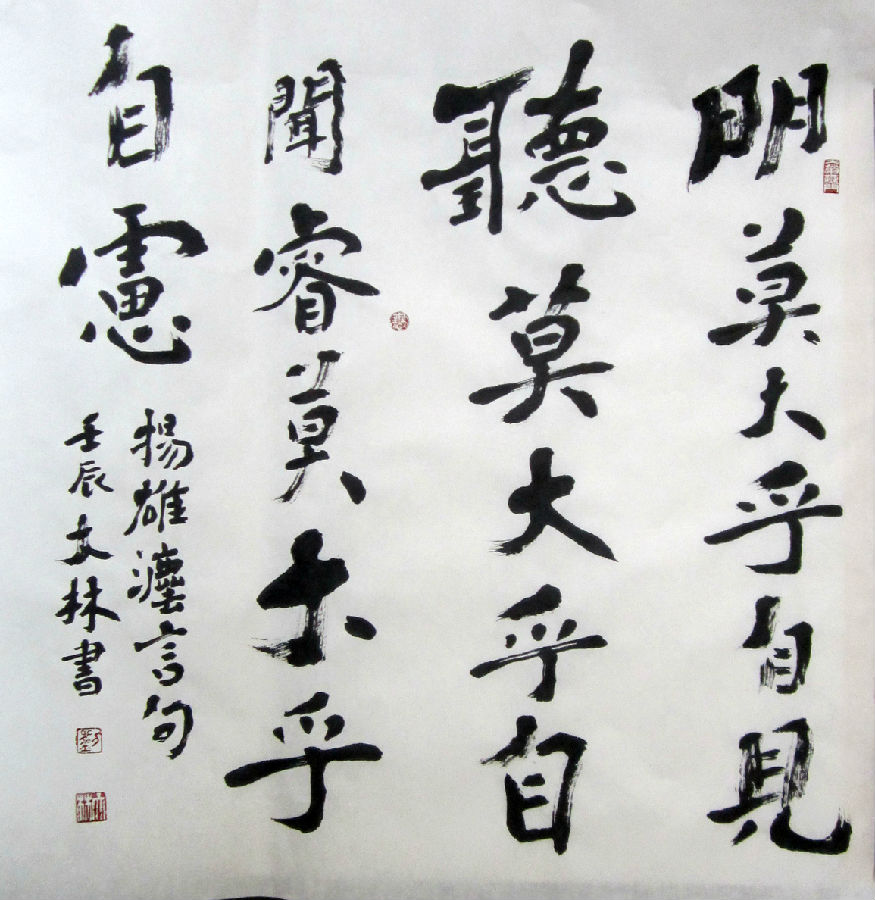 明莫大乎自見
聽莫大乎自
聞睿莫大乎
自慮
揚雄灋言句
壬辰文林書